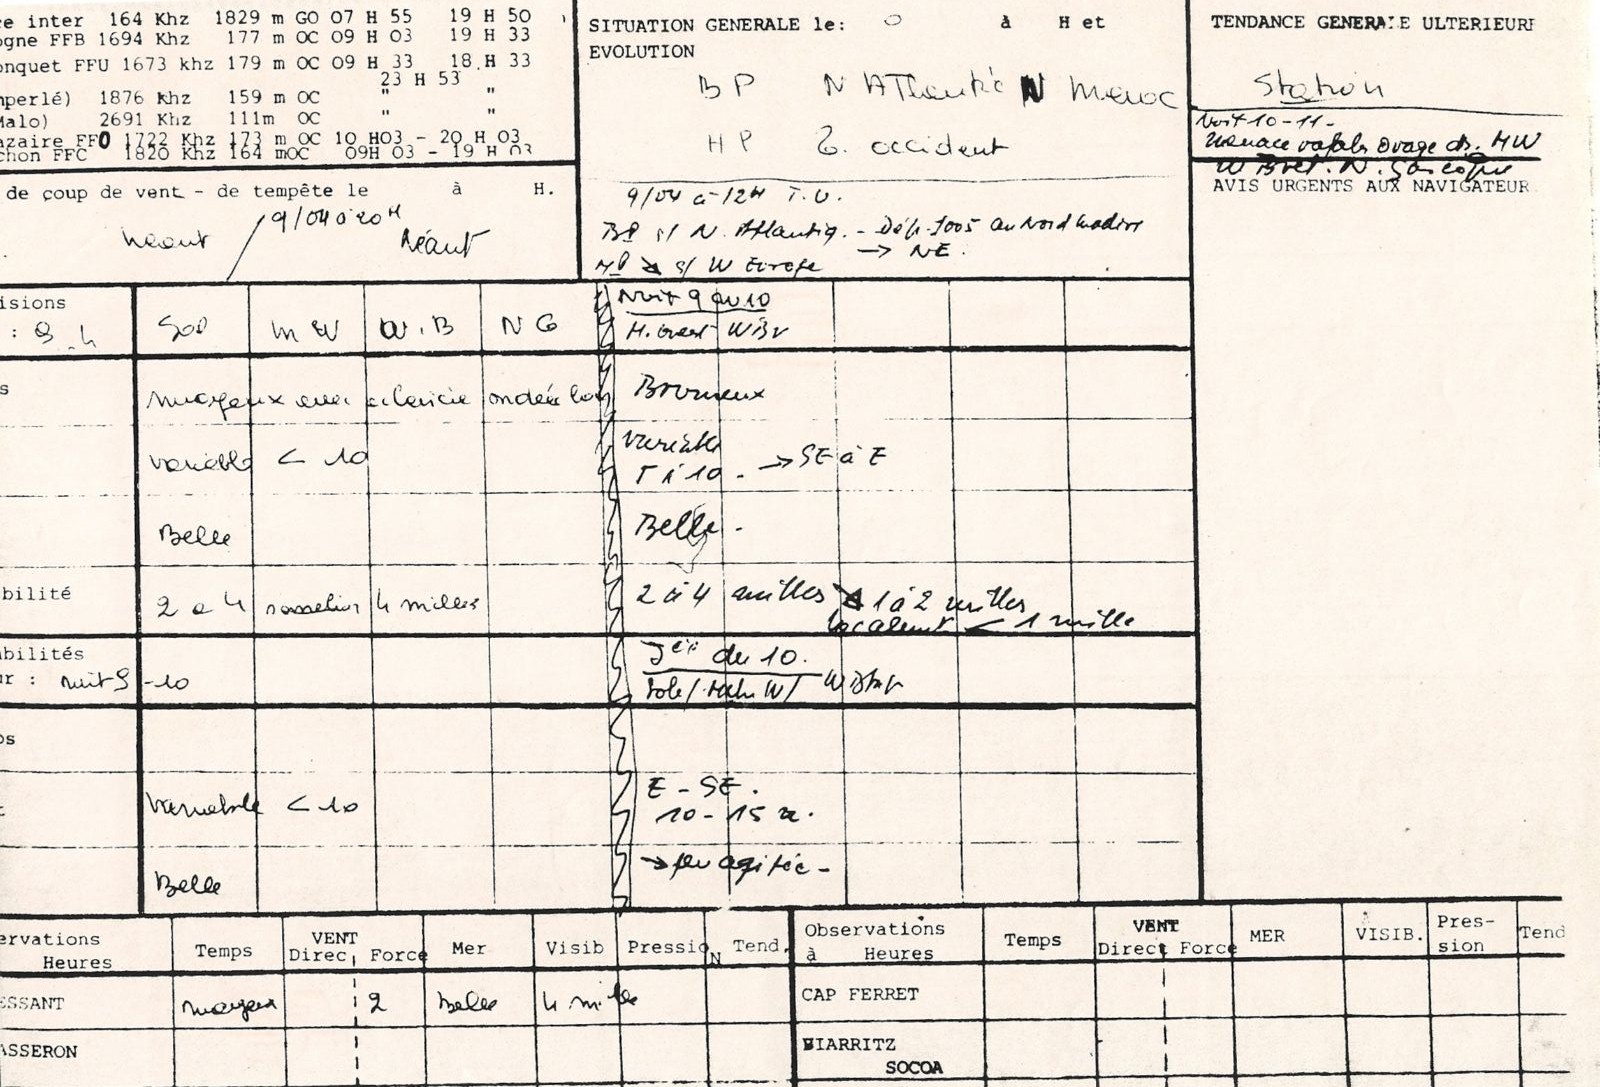 ce inter 164 Khz 1829 m GO 07 H 55 19 H 50
ogne FFB 1694 Khz 177 m OC 09 H 03 19 H 33
onquet FFU 1673 khz 179 m OC 09 H 33 18.H 33
23 H 53
mperlé) 1876 Khz 159 m OC " "
Malo) 2691 Khz 111m OC " "
azaire FFO 1722 Khz 173 m OC 10 H03 - 20 H 03
chon FFC 1820 Khz 164 mOC 09H 03 - 19 H 03
de coup de vent - de tempête le à H.
9/04 à 20H
Néant Néant
SITUATION GENERALE le: à H et
EVOLUTION
BP N Atlantic N Maroc
HP E. occident
9/04 à 12H T.U.
BP s/ N. Atlantiq. - Dép. 1005 au Nord Madère
→ NE.
HP ↘ s/ W Europe
TENDANCE GENERALE ULTERIEURE
Station
Nuit 10-11-
menace orage ds. MW
W Bret. N. Gascogne
AVIS URGENTS AUX NAVIGATEUR
isions
: 9.4 SOP M W W.B N G
Nuit 9 au 10
M. Ouest W Br
s nuageux avec éclaircie ondée loc
Brumeux
variable < 10
variable
5 à 10. → SE à E
Belle
Belle.
bilité 2 a 4 4 milles
2 à 4 milles ↘ 1 à 2 milles
localemt < 1 mille
bilités
ur : nuit 9-10
du 10.
W Bret
os
variable < 10
E - SE.
10-15 n.
Belle
→ peu agitée -
ervations
Heures
Temps
VENT
Direc. Force
Mer
Visib
Pression
Tend.
ESSANT nuageux 2 belle 4 mille
ASSERON
Observations
à Heures
Temps
VENT
Direct Force
MER
VISIB.
Pres-
sion
Tend
CAP FERRET
BIARRITZ
SOCOA